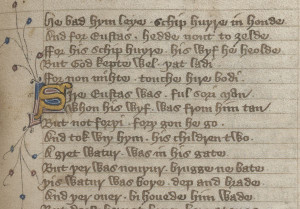 he bad hym leve schip huyre in honde
And for Eustas hedde nout to zelde
ffor his schip huyre his wyf he heolde
But God kepte wel þat ladi
ffor non mihte touche hire bodi
Sire Eustas was ful sori mon
Whon his wyf was from him tan
But not forþi forþ gon he go
And tok wiþ hym his children two
A gret watur was in his gate
But þer was nouþur brugge ne bate
þis watur was bope dep and brade
And þer over bi houede him wade